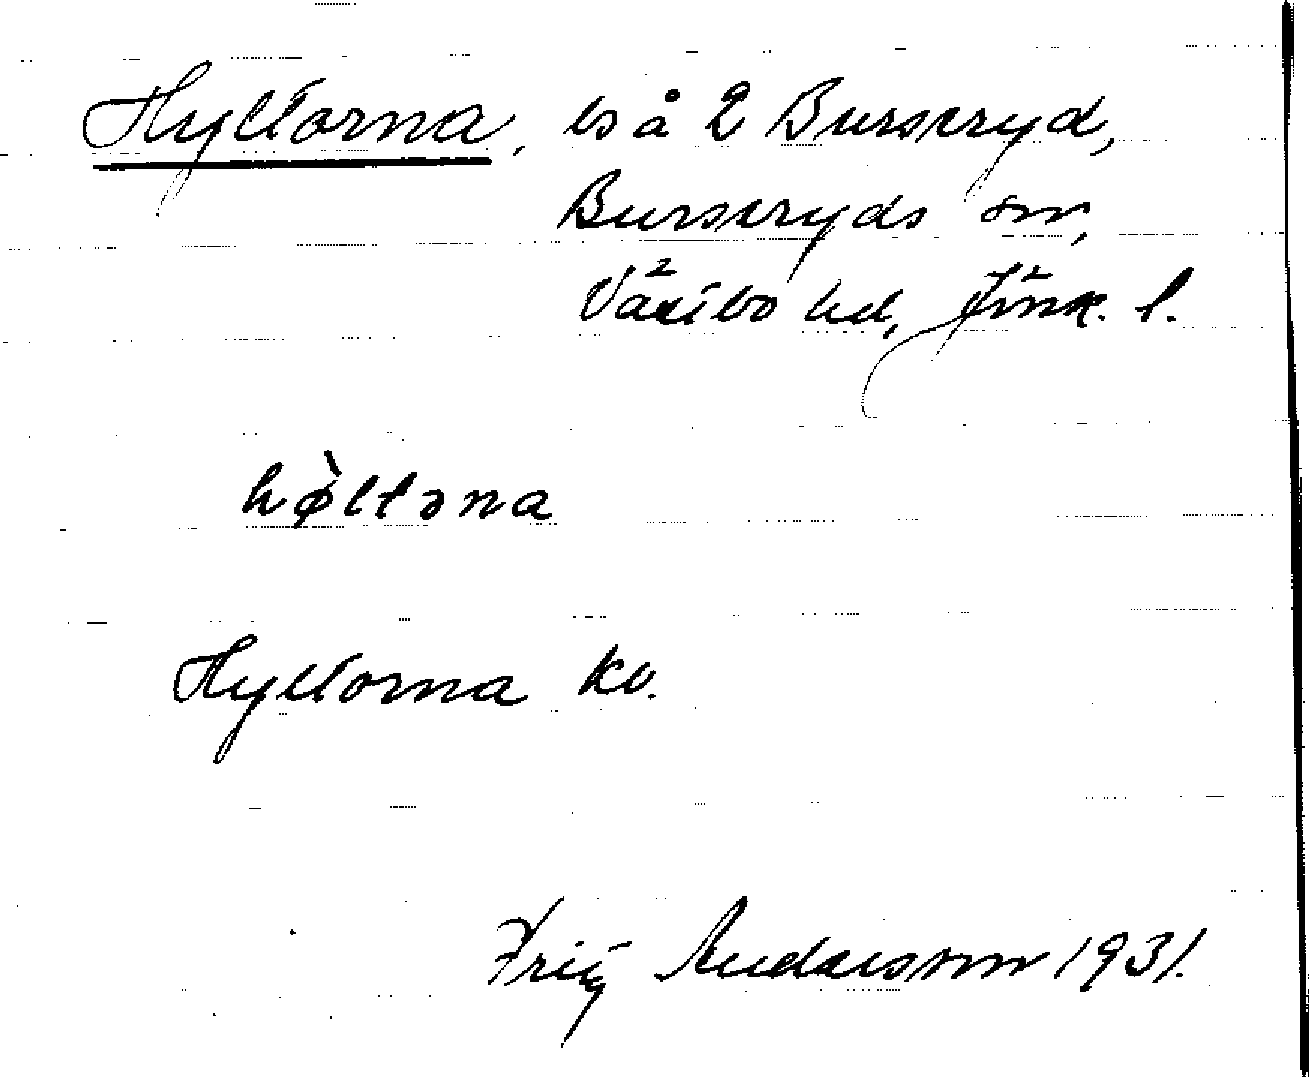 Hyltorna, ls å 2 Burseryd,
Burseryds sn,
Västbo hd, Jönk. l.
hø̀ltɔna
Hyltorna kv.
Frig Andersson 1931.